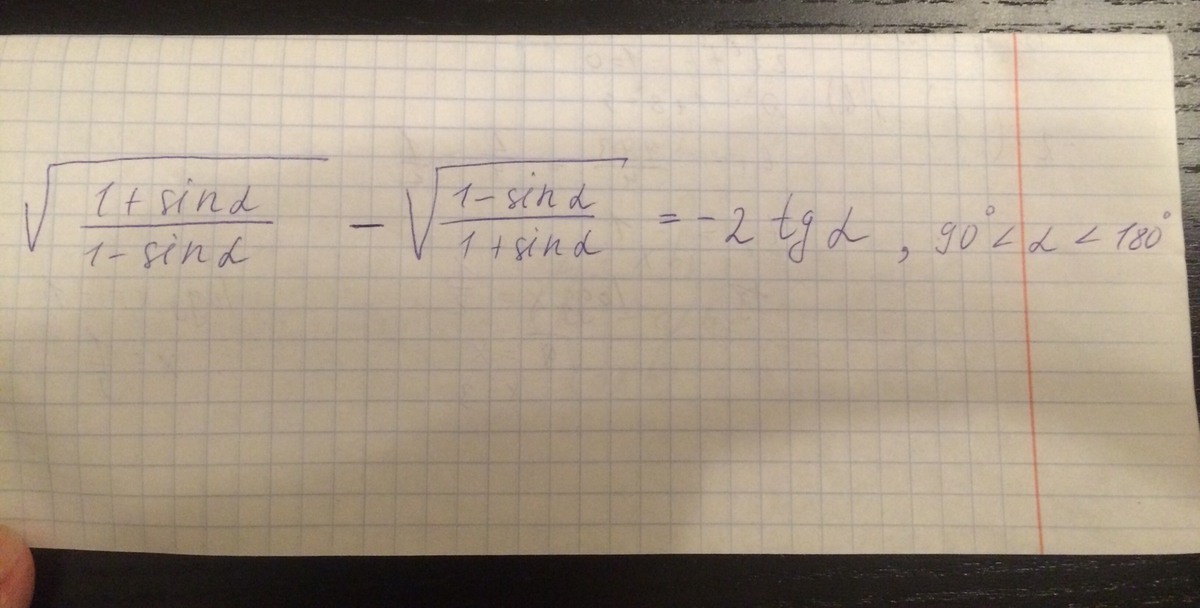 √((1 + sin α)/(1 - sin α)) - √((1 - sin α)/(1 + sin α)) = -2 tg α , 90° < α < 180°